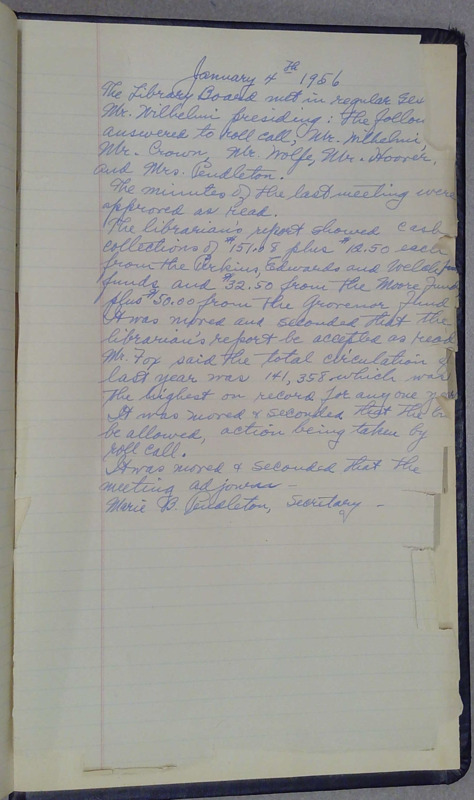 January 4th 1956
The Library Board met in regular ses
Mr. Wilhelmi presiding: The follow
answered to roll call, Mr. Wilhelmi,
Mr. Crown, Mr. Wolfe, Mr. Hoover,
and Mrs. Pendleton.
The minutes of the last meeting were
approved as read.
The librarians report showed cash
collections of $151.08 plus $12.50 each
from the Perkins, Edwards and Welsh
funds and $32.50 from the Moore Fund
plus $50.00 from the Grovenor Fund
It was moved and seconded that the
librarian's report be accepted as read
Mr. Fox said the total circulation
last year was 141,358 which was
the highest on record for any one
It was moved & seconded that the b
be allowed, action being taken by
roll call.
It was moved & seconded that the
meeting adjourn –
Marie B. Pendleton, Secretary –